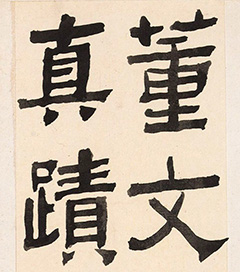 董文
真蹟